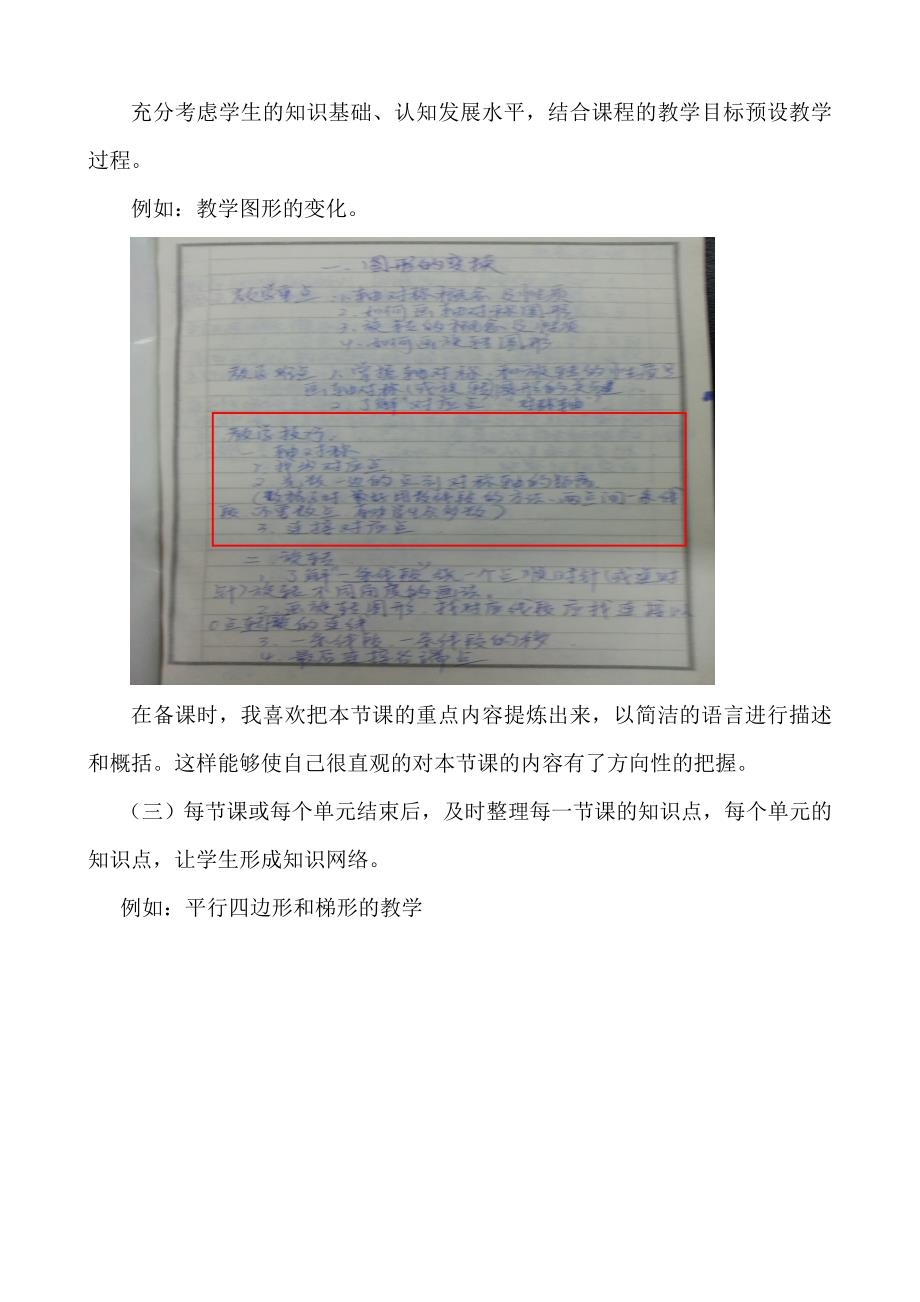 充分考虑学生的知识基础、认知发展水平，结合课程的教学目标预设教学
过程。
例如：教学图形的变化。
一、图形的变换
教学重点：1、轴对称概念及性质
2、如何画轴对称图形
3、旋转的概念及性质
4、如何画旋转图形
教学难点：1、掌握轴对称和旋转的性质是
画轴对称(或旋转)图形的关键
2、了解"对应点""对称轴"
教学技巧：
一、轴对称
1、找出对应点
2、先数一边的点到对称轴的距离
(数格子时最好用数线段的方法、两点间一条线
段、不要数点
3、连接对应点
二、旋转
1、了解"一条线段"绕一个点顺时针(或逆时
针)旋转不同角度的画法。
2、画旋转图形，找对应线段
3、一条线段一条线段的移
4、最后连接各端点
在备课时，我喜欢把本节课的重点内容提炼出来，以简洁的语言进行描述
和概括。这样能够使自己很直观的对本节课的内容有了方向性的把握。
（三）每节课或每个单元结束后，及时整理每一节课的知识点，每个单元的
知识点，让学生形成知识网络。
例如：平行四边形和梯形的教学